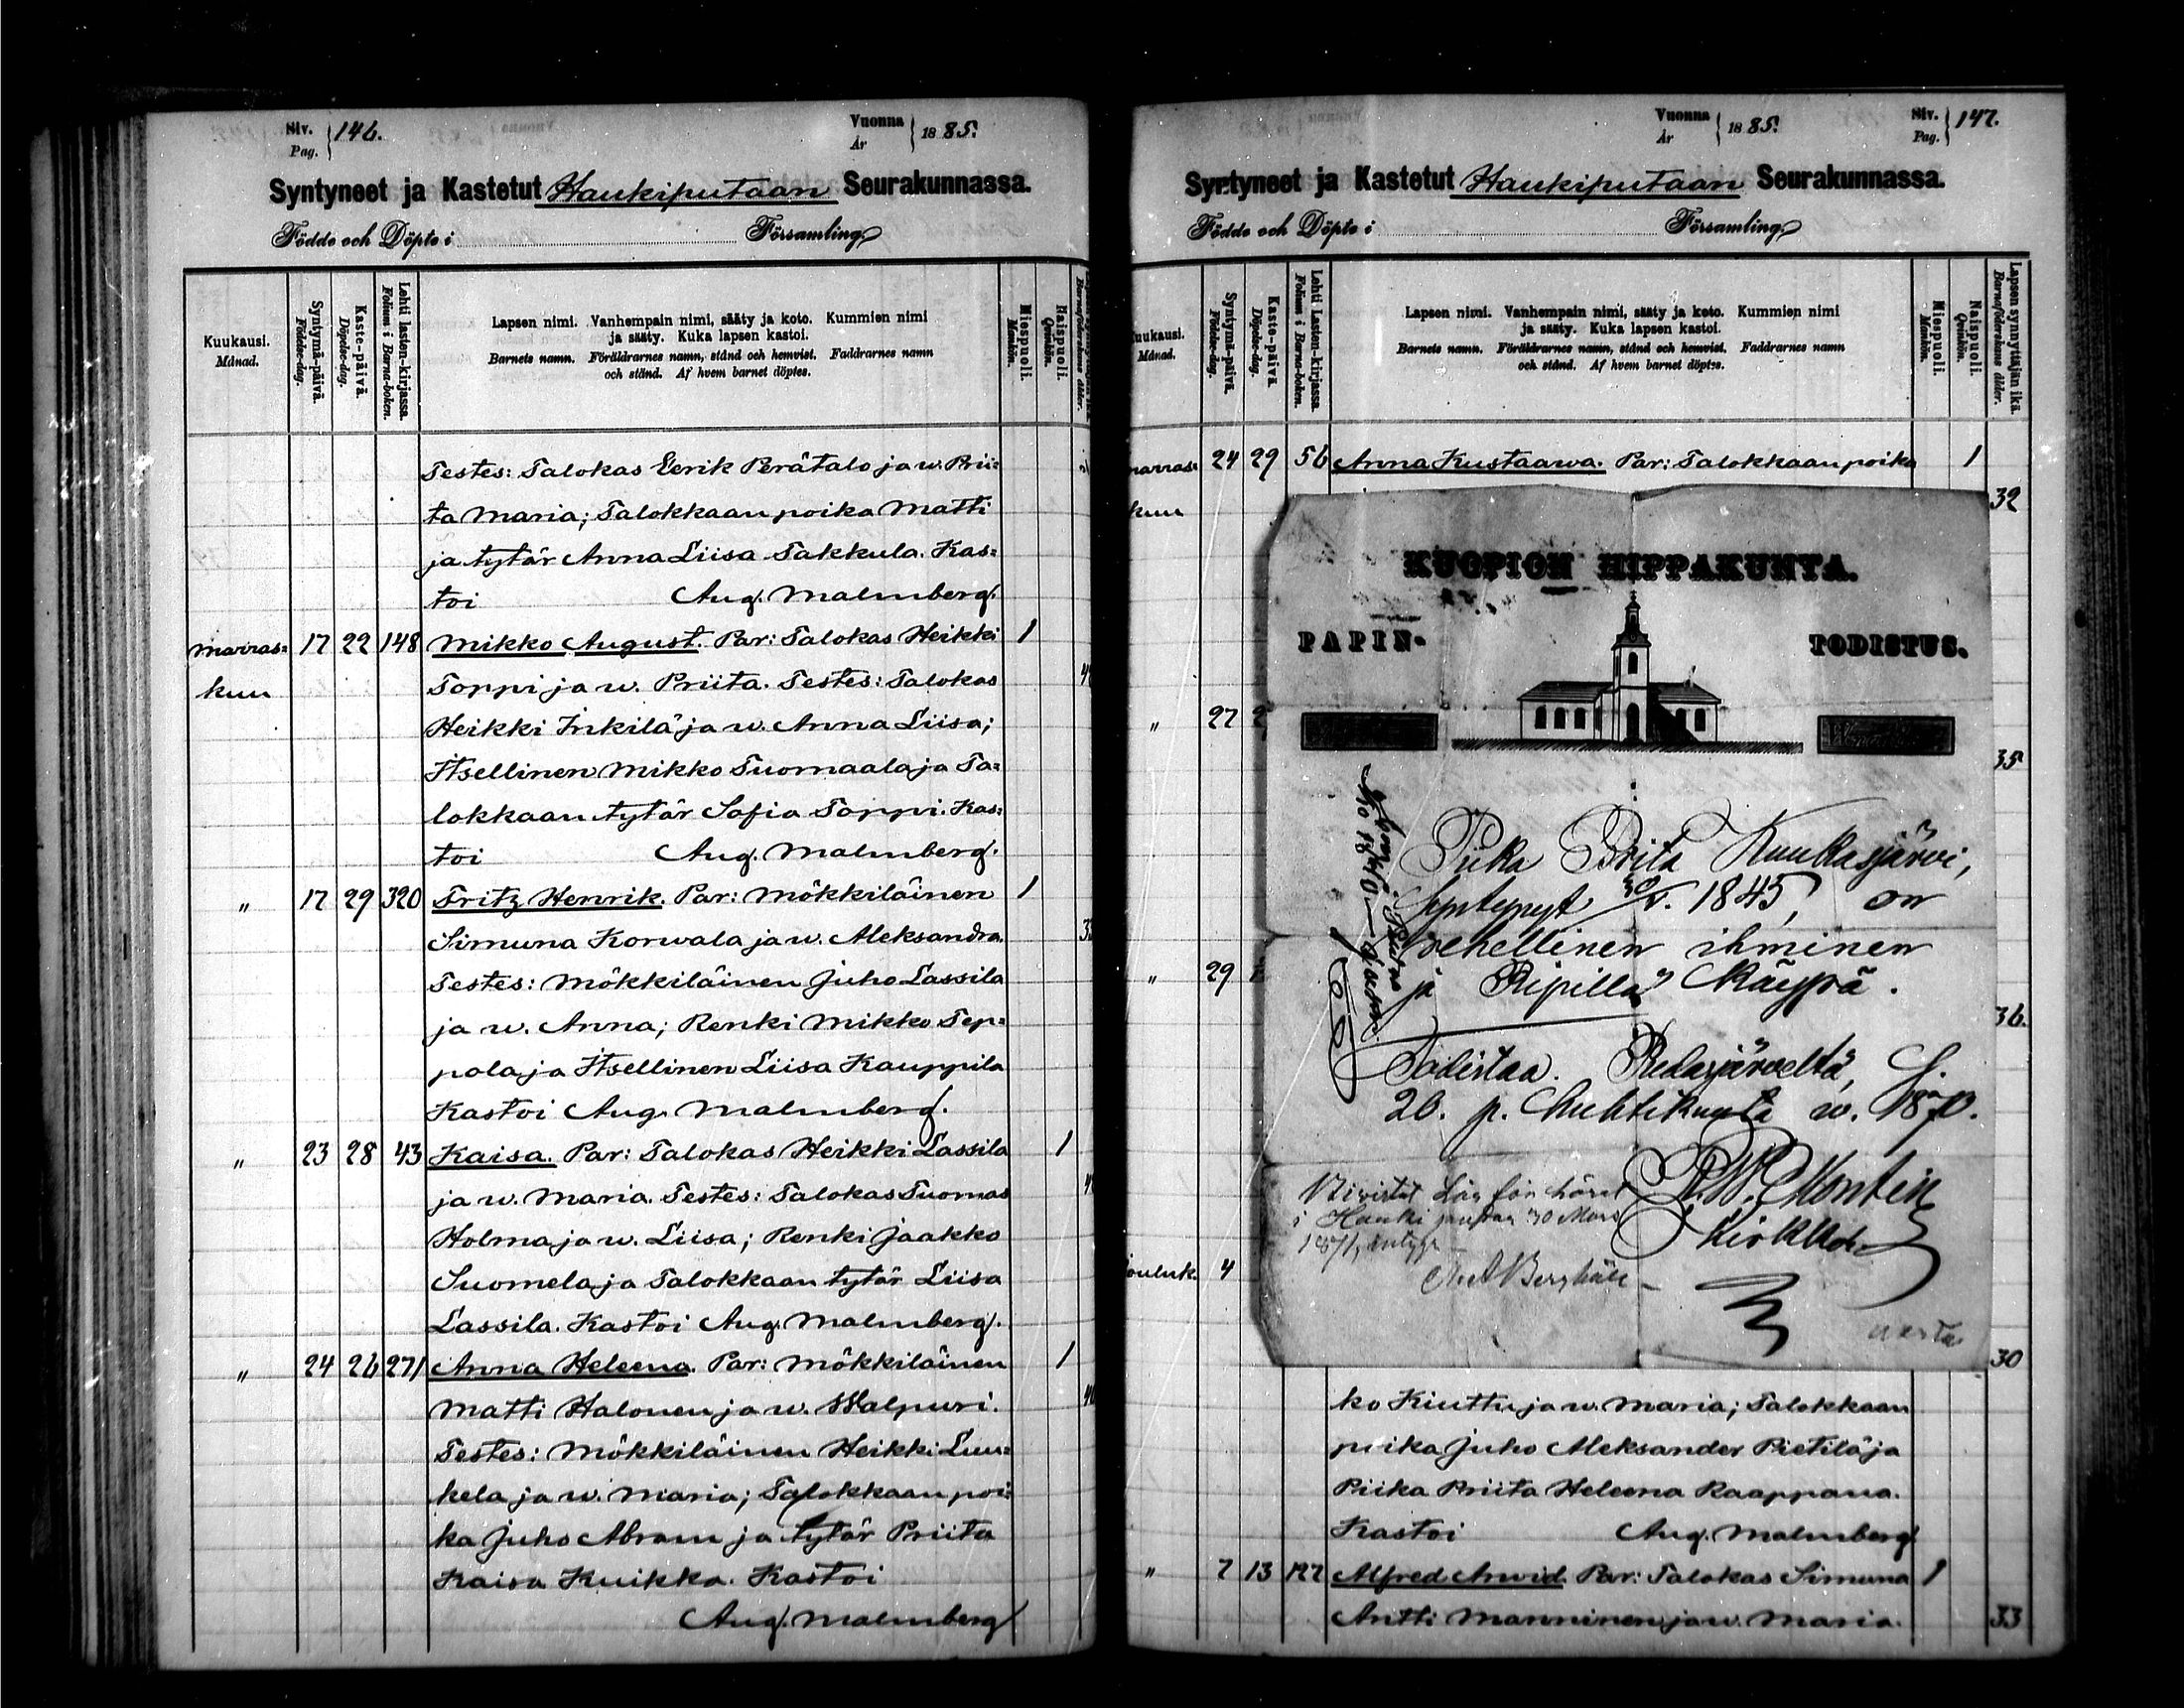 Siv. Pag. 146.
Vuonna År 1885.
Syntyneet ja Kastetut Haukiputaan Seurakunnassa.
Födde och Döpte i Församling
Kuukausi. Månad.
Syntymä-päivä. Födelse-dag.
Kaste-päivä. Döpelse-dag.
Lehti lasten-kirjassa. Folium i Barna-boken.
Lapsen nimi. Vanhempain nimi, sääty ja koto. Kummien nimi
ja sääty. Kuka lapsen kastoi.
Barnets namn. Föräldrarnes namn, stånd och hemvist. Faddrarnes namn
och stånd. Af hvem barnet döptes.
Miespuoli. Mankön.
Naispuoli. Qvinkön.
Testes: Talokas Eerik Perätalo ja w. Prii=
ta Maria; Talokkaan poika Matti
ja tytär Anna Liisa Takkula. Kas=
toi Aug. Malmberg.
Marras= 17 22 148 Mikko August. Par: Talokas Heikki 1
kuu Torppi ja w. Priita. Testes: Talokas
Heikki Inkilä ja w. Anna Liisa;
Itsellinen Mikko Tuomaala ja Ta=
lokkaan tytär Sofia Torppi. Kas=
toi Aug. Malmberg.
" 17 29 320 Fritz Henrik. Par: Mökkiläinen 1
Simuna Korwala ja w. Aleksandra.
Testes: Mökkiläinen Juho Lassila
ja w. Anna; Renki Mikko Tep=
pola ja Itsellinen Liisa Kauppila
Kastoi Aug. Malmberg.
" 23 28 43 Kaisa. Par: Talokas Heikki Lassila 1
ja w. Maria. Testes: Talokas Tuomas
Holma ja w. Liisa; Renki Jaakko
Suomela ja Talokkaan tytär Liisa
Lassila. Kastoi Aug. Malmberg.
" 24 26 271 Anna Heleena. Par: Mökkiläinen 1
Matti Halonen ja w. Walpuri.
Testes: Mökkiläinen Heikki Luu=
kela ja w. Maria; Talokkaan poi=
ka Juho Abram ja tytär Priita
Kaisa Kuikka. Kastoi
Aug. Malmberg
Vuonna År 1885.
Siv. Pag. 147.
Syntyneet ja Kastetut Haukiputaan Seurakunnassa.
Födde och Döpte i Församling
uukausi. Månad.
Syntymä-päivä. Födelse-dag.
Kaste-päivä. Döpelse-dag.
Lehti Lasten-kirjassa. Folium i Barna-boken.
Lapsen nimi. Vanhempain nimi, sääty ja koto. Kummien nimi
ja sääty. Kuka lapsen kastoi.
Barnets namn. Föräldrarnes namn, stånd och hemvist. Faddrarnes namn
och stånd. Af hvem barnet döptes.
Miespuoli. Mankön.
Naispuoli. Qvinkön.
Lapsen synnyttäjän ikä. Barnaföderskans ålder.
marras= 24 29 56 Anna Kustaawa. Par: Talokkaan poika 1
kuu 32
KUOPION HIPPAKUNTA.
PAPIN- TODISTUS.
" 27
35
Piika Brita Kuukasjärvi,
Syntynyt 1845, on
rehellinen ihminen
" 29 ja Ripillä Käyppä.
36.
Todistaa. Pudasjärveltä,
26. p. Huhtikuuta w. 1870.
R.W. Montin
Kirkkoh.
30 Mars
1871,
jouluk. 4
30
ko Kiuttu ja w. Maria; Talokkaan
poika Juho Aleksander Pietilä ja
Piika Priita Heleena Raappana.
Kastoi Aug. Malmberg
" 7 13 197 Alfred Arwid. Par: Talokas Simuna 1
Antti Manninen ja w. Maria. 33